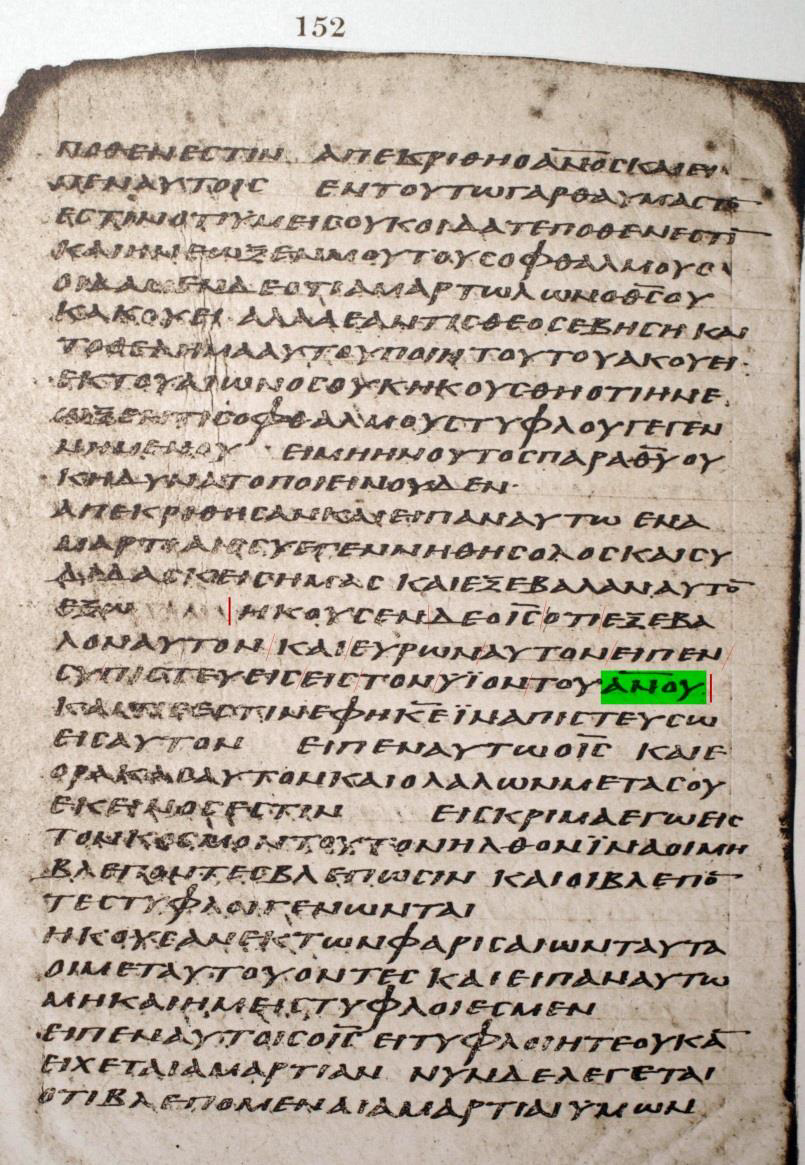 152
ΠΟΘΕΝΕСΤΙΝ ΑΠΕΚΡΙΘΗΟΑ̅Ν̅Ο̅СΚΑΙΕΙ
ΠΕΝΑΥΤΟΙС ΕΝΤΟΥΤΩΓΑΡΘΑΥΜΑСΤΟ̅
ΕСΤΙΝΟΤΙΥΜΕΙСΟΥΚΟΙΔΑΤΕΠΟΘΕΝΕСΤΙ̅
ΚΑΙΗΝΕΩΞΕΝΜΟΥΤΟΥСΟΦΘΑΛΜΟΥС
ΟΙΔΑΜΕΝΔΕΟΤΙΑΜΑΡΤΩΛΩΝΟΘ̅С̅ΟΥ
ΚΑΚΟΥΕΙ ΑΛΛΑΕΑΝΤΙСΘΕΟСΕΒΗСΗ ΚΑΙ
ΤΟΘΕΛΗΜΑΑΥΤΟΥΠΟΙΗ ΤΟΥΤΟΥΑΚΟΥΕΙ·
ΕΚΤΟΥΑΙΩΝΟСΟΥΚΗΚΟΥСΘΗΟΤΙΗΝΕ
ΩΞΕΝΤΙСΟΦΘΑΛΜΟΥСΤΥΦΛΟΥΓΕΓΕΝ
ΝΗΜΕΝΟΥ ΕΙΜΗΗΝΟΥΤΟСΠΑΡΑΘ̅Υ̅ΟΥ
ΚΗΔΥΝΑΤΟΠΟΙΕΙΝΟΥΔΕΝ·
ΑΠΕΚΡΙΘΗСΑΝΚΑΙΕΙΠΑΝΑΥΤΩ ΕΝΑ
ΜΑΡΤΙΑΙССΥΕΓΕΝΝΗΘΗСΟΛΟСΚΑΙСΥ
ΔΙΔΑСΚΕΙСΗΜΑС ΚΑΙΕΞΕΒΑΛΑΝΑΥΤΟ̅
ΕΞΩ ΗΚΟΥСΕΝΔΕΟΙ̅С̅ΟΤΙΕΞΕΒΑ
ΛΟΝΑΥΤΟΝ ΚΑΙΕΥΡΩΝΑΥΤΟΝΕΙΠΕΝ
СΥΠΙСΤΕΥΕΙСΕΙСΤΟΝΥΪΟΝΤΟΥΑ̅Ν̅Ο̅Υ̅
ΚΑΙΤΙСΕСΤΙΝΕΦΗΚ̅Ε̅ΪΝΑΠΙСΤΕΥСΩ
ΕΙСΑΥΤΟΝ ΕΙΠΕΝΑΥΤΩΟΙ̅С̅ ΚΑΙΕ
ΟΡΑΚΑСΑΥΤΟΝΚΑΙΟΛΑΛΩΝΜΕΤΑСΟΥ
ΕΚΕΙΝΟСΕСΤΙΝ ΕΙСΚΡΙΜΑΕΓΩΕΙС
ΤΟΝΚΟСΜΟΝΤΟΥΤΟΝΗΛΘΟΝΪΝΑΟΙΜΗ
ΒΛΕΠΟΝΤΕСΒΛΕΠΩСΙΝ ΚΑΙΟΙΒΛΕΠΟ̅
ΤΕСΤΥΦΛΟΙΓΕΝΩΝΤΑΙ
ΗΚΟΥСΑΝΕΚΤΩΝΦΑΡΙСΑΙΩΝΤΑΥΤΑ
ΟΙΜΕΤΑΥΤΟΥΟΝΤΕС ΚΑΙΕΙΠΑΝΑΥΤΩ
ΜΗΚΑΙΗΜΕΙСΤΥΦΛΟΙΕСΜΕΝ
ΕΙΠΕΝΑΥΤΟΙСΟΙ̅С̅ ΕΙΤΥΦΛΟΙΗΤΕΟΥΚΑ̅
ΕΙΧΕΤΑΙΑΜΑΡΤΙΑΝ ΝΥΝΔΕΛΕΓΕΤΑΙ
ΟΤΙΒΛΕΠΟΜΕΝΑΙΑΜΑΡΤΙΑΙΥΜΩΝ